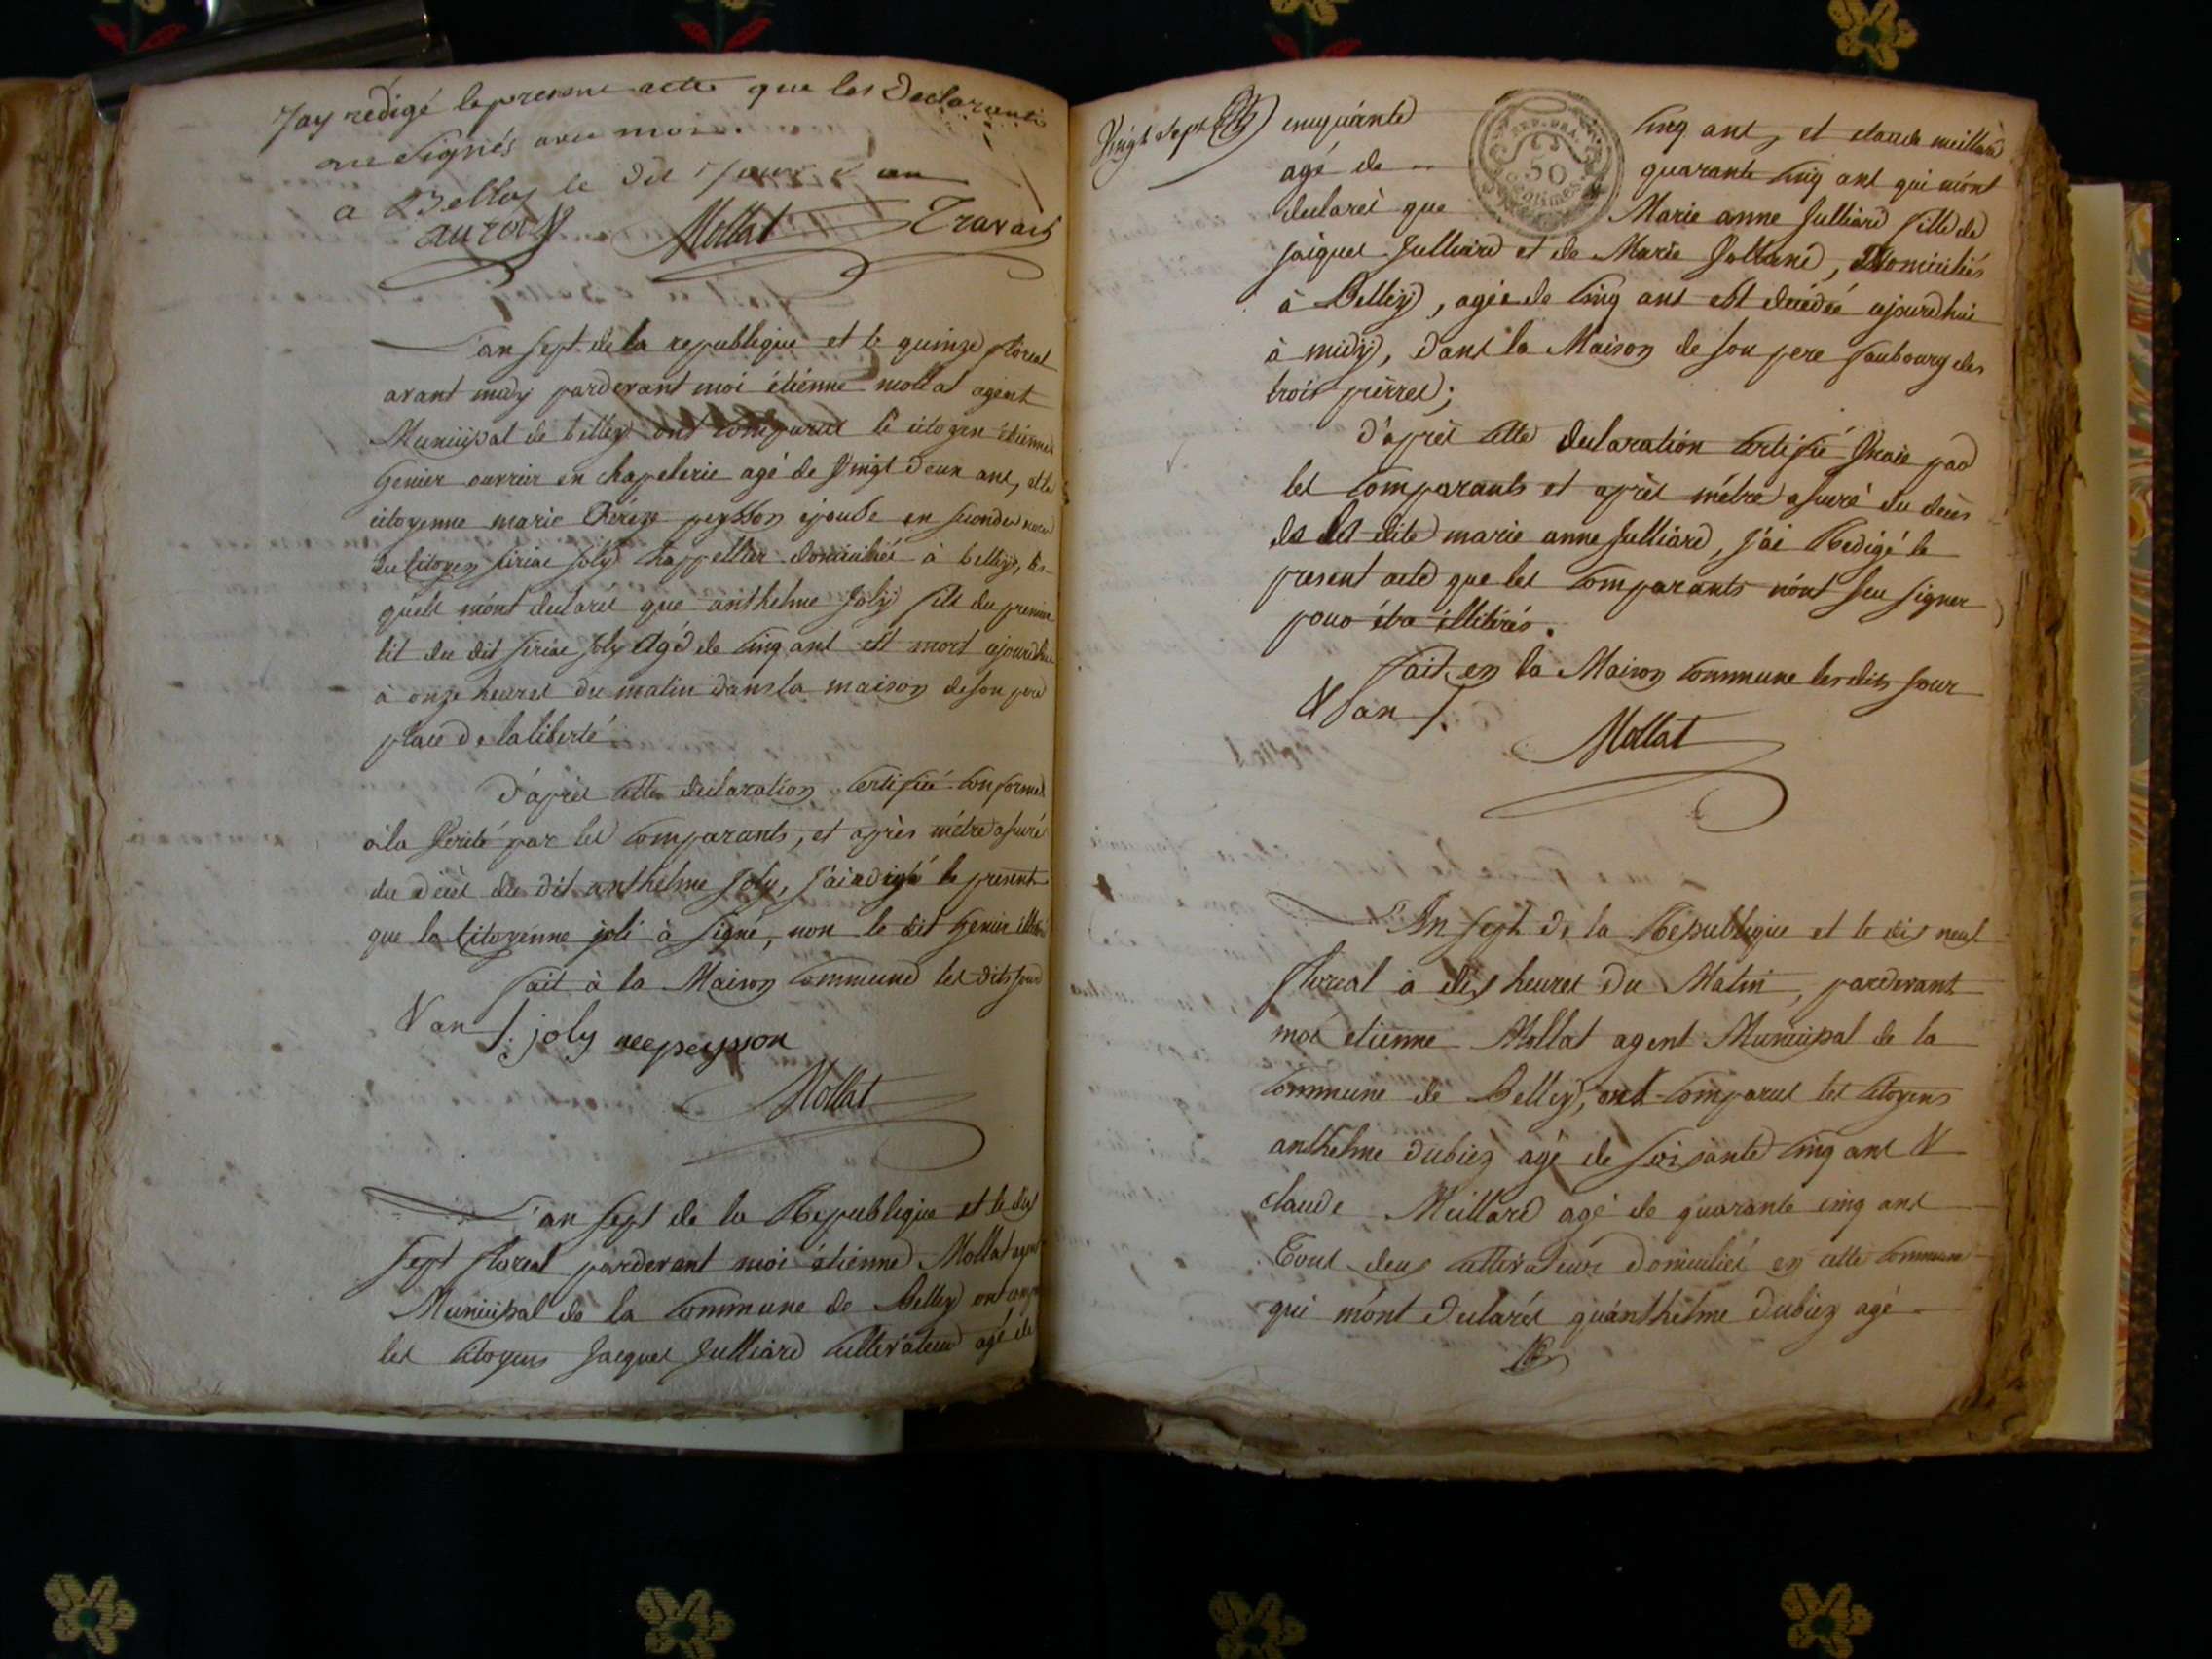 Jay rédigé le present acte que les Declarants
ont signés avec moi.
a Belley le dit Jour & an
Mollat Travail
L'an sept de la republique et le quinze floreal
avant midy pardevant moi étiénne mollat agent
Municipal de belley ont comparus le citoyen étienne
Genier ouvrier en chapelerie agé de Vingt deux ans, et la
citoyenne marie peysson épouse en secondes noces
du Citoyen siriac joly chappellier domiciliés à belley, les-
quels mónt declarés que anthelme Joly fils du premier
lit du dit siriac joly Agé de cinq ans est mort ajourdhui
à onze heures du matin dans la maison de son pere
place de la liberté
D'aprés cette declaration certifiée conforme
à la Verité par les comparants, et aprés métre assuré
du décés du dit anthelme Joly, j'ai redigé le present
que la Citoyenne joli à signé, non le dit genier
fait à la Maison commune les dits jour
& an /. joly nee peysson
Mollat
L'an sept de la Republique et le dix
sept floreal pardevant moi étienne Mollat agent
Municipal de la commune de Belley ont comparu
les citoyens Jacques Julliard cultivateur agé de
Vingt sept cinquante cinq ans, et claude meillard
REP. FRA. 50 centimes
agé de quarante cinq ans qui mónt
declarés que Marie anne Julliard fille de
jaques Julliard et de Marie , Domiciliés
à Belley, agée de cinq ans est décédée ajourdhui
à midy, dans la Maison de son pere faubourg des
trois pierres;
D'aprés cette declaration certifié Vraie par
les comparants et aprés métre assuré du décés
de la dite marie anne Julliard, j'ai Redigé le
present acte que les comparants nónt seu signer
pour étre illitérés.
fait en la Maison commune les dits jour
& an /.
Mollat
L'An sept de la République et le dix neuf
floreal à dix heures Du Matin, pardevant
moi etienne Mollat agent Municipal de la
commune de Belley, ont comparus les citoyens
anthelme Dubiez agé de soixante cinq ans &
claude Meillard agé de quarante cinq ans
Tous deux cultivateurs domiciliés en cette commune
qui mónt Declarés quánthelme Dubiez agé